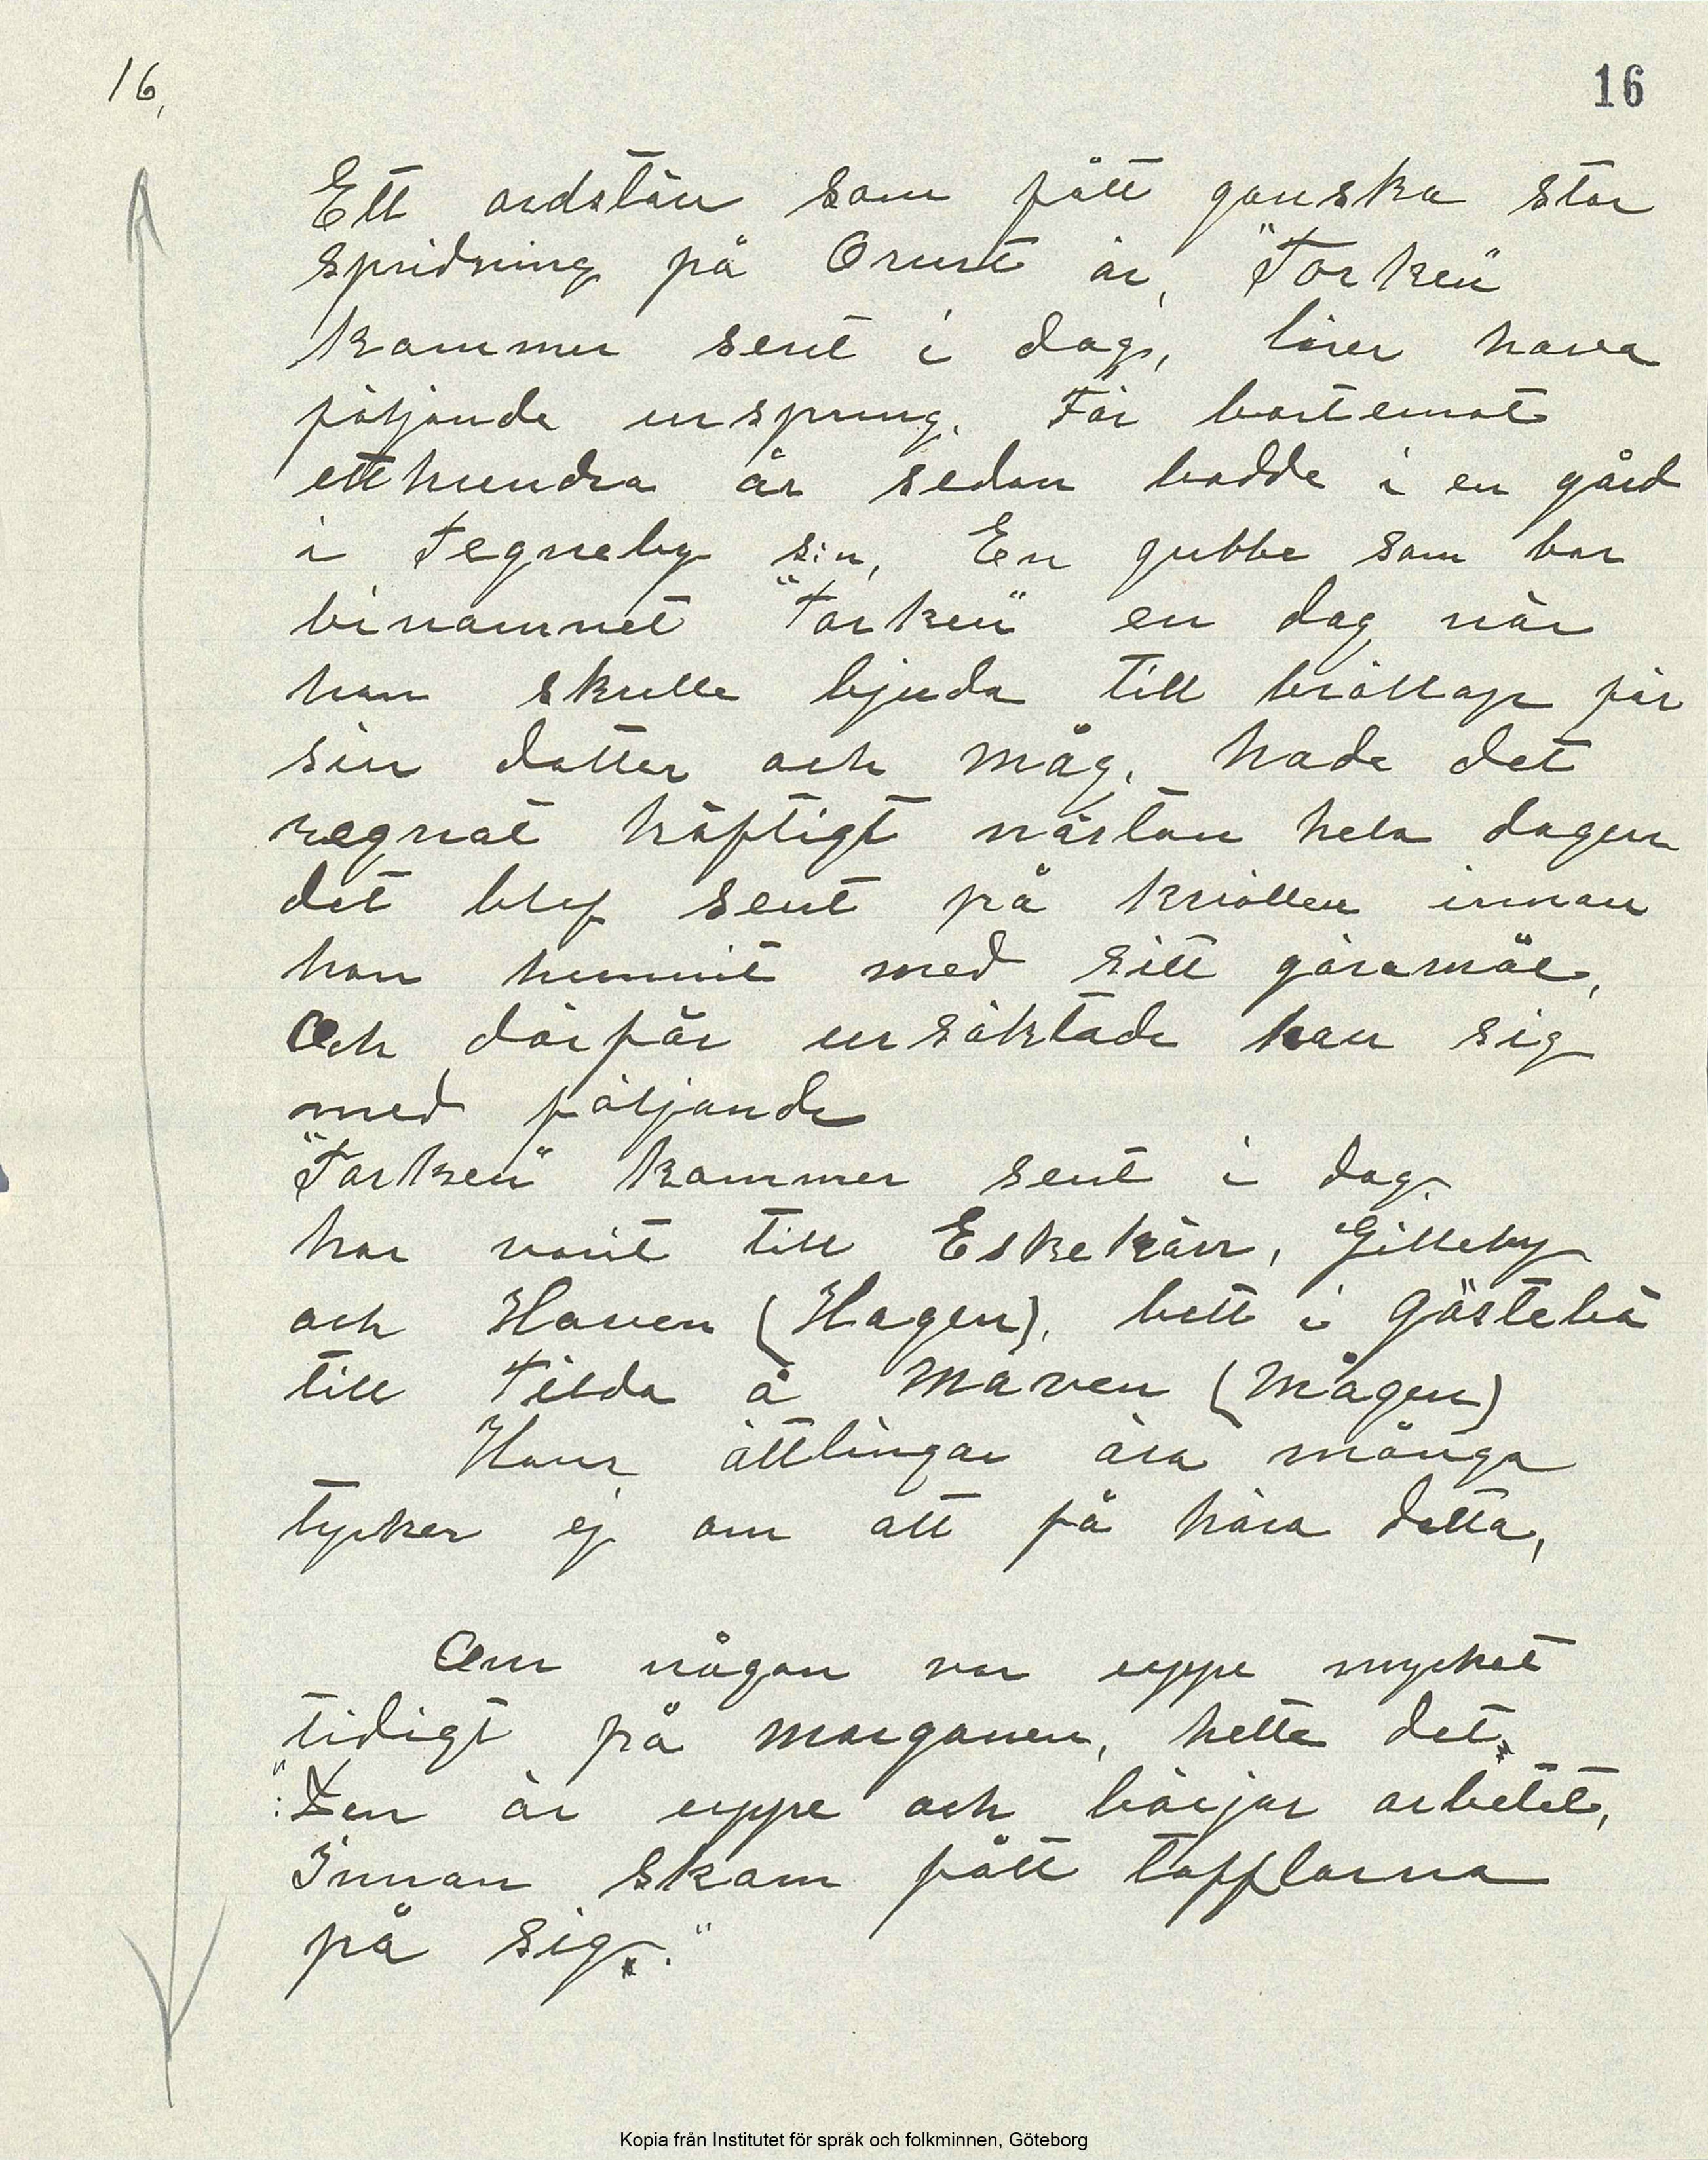 16. 16
Ett ordstäv som fått ganska stor
spridning på Orust är, "Torken"
kommer sent i dag, lärer hava
följande ursprung. För bortemot
etthundra år sedan bodde i en gård
i Tegneby s:n, En gubbe som bar
binamnet "Torken" en dag när
han skulle bjuda till bröllop för
sin dotter och måg. hade det
regnat häftigt nästan hela dagen
det blef sent på kvällen innan
han hunnit med sitt göromål,
Och därför ursäktade han sig
med följande
"Torken" kommer sent i dag.
har varit till Eskekärr, Gilleby
och Haven (Hagen). bett i Gästebå
till Tilda å Måven (Mågen)
Hans ättlingar ära många
tycker ej om att få höra detta,
Om någon var uppe mycket
tidigt på morgonen, hette det.
:"Den är uppe och börjar arbetet,
Innan skam fått tofflorna
på sig."
Kopia från Institutet för språk och folkminnen, Göteborg